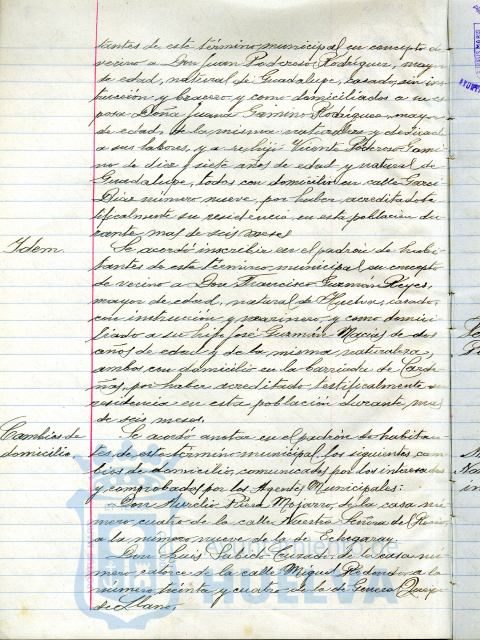 tantes de este término municipal en concepto de
vecino a Don Juan Poderoso Rodríguez, mayor
de edad, natural de Guadalupe, casado, sin ins
trucción y bracero, y como domiciliados a su es
posa Doña Juana Gamino Rodríguez, mayor
de edad, de la misma naturaleza y dedicada
a sus labores, y a su hijo Vicente Poderoso Gami
no de diez y siete años de edad y natural de
Guadalupe, todos con domicilio en calle Garci
Díaz número nueve, por haber acreditado tes
tificalmente su residencia en esta población du
rante mas de seis meses.
Idem.
Se acordó inscribir en el padrón de habi
tantes de este término municipal en concepto
de vecino a Don Francisco Guzmán Reyes,
mayor de edad, natural de Huelva, casado,
con instrucción y marinero, y como domici
liado a su hijo José Guzmán Macías de dos
años de edad y de la misma naturaleza,
ambos con domicilio en la barriada de Carde
ñas, por haber acreditado testificalmente su
residencia en esta población durante mas
de seis meses.
Cambios de
domicilio.
Se acordó anotar en el padrón de habitan
tes de este término municipal los siguientes cam
bios de domicilio, comunicados por los interesados
y comprobados por los Agentes Municipales:
Don Aurelio Riesa Mojarro, de la casa nú
mero cuatro de la calle Nuestra Señora del Rocío,
a la número nueve de la de Echegaray.
Don Luis Salido Curado, de la casa nú
mero catorce de la calle Miguel Redondo, a la
número treinta y cuatro de la de General Queipo
de Llano.
HUELVA